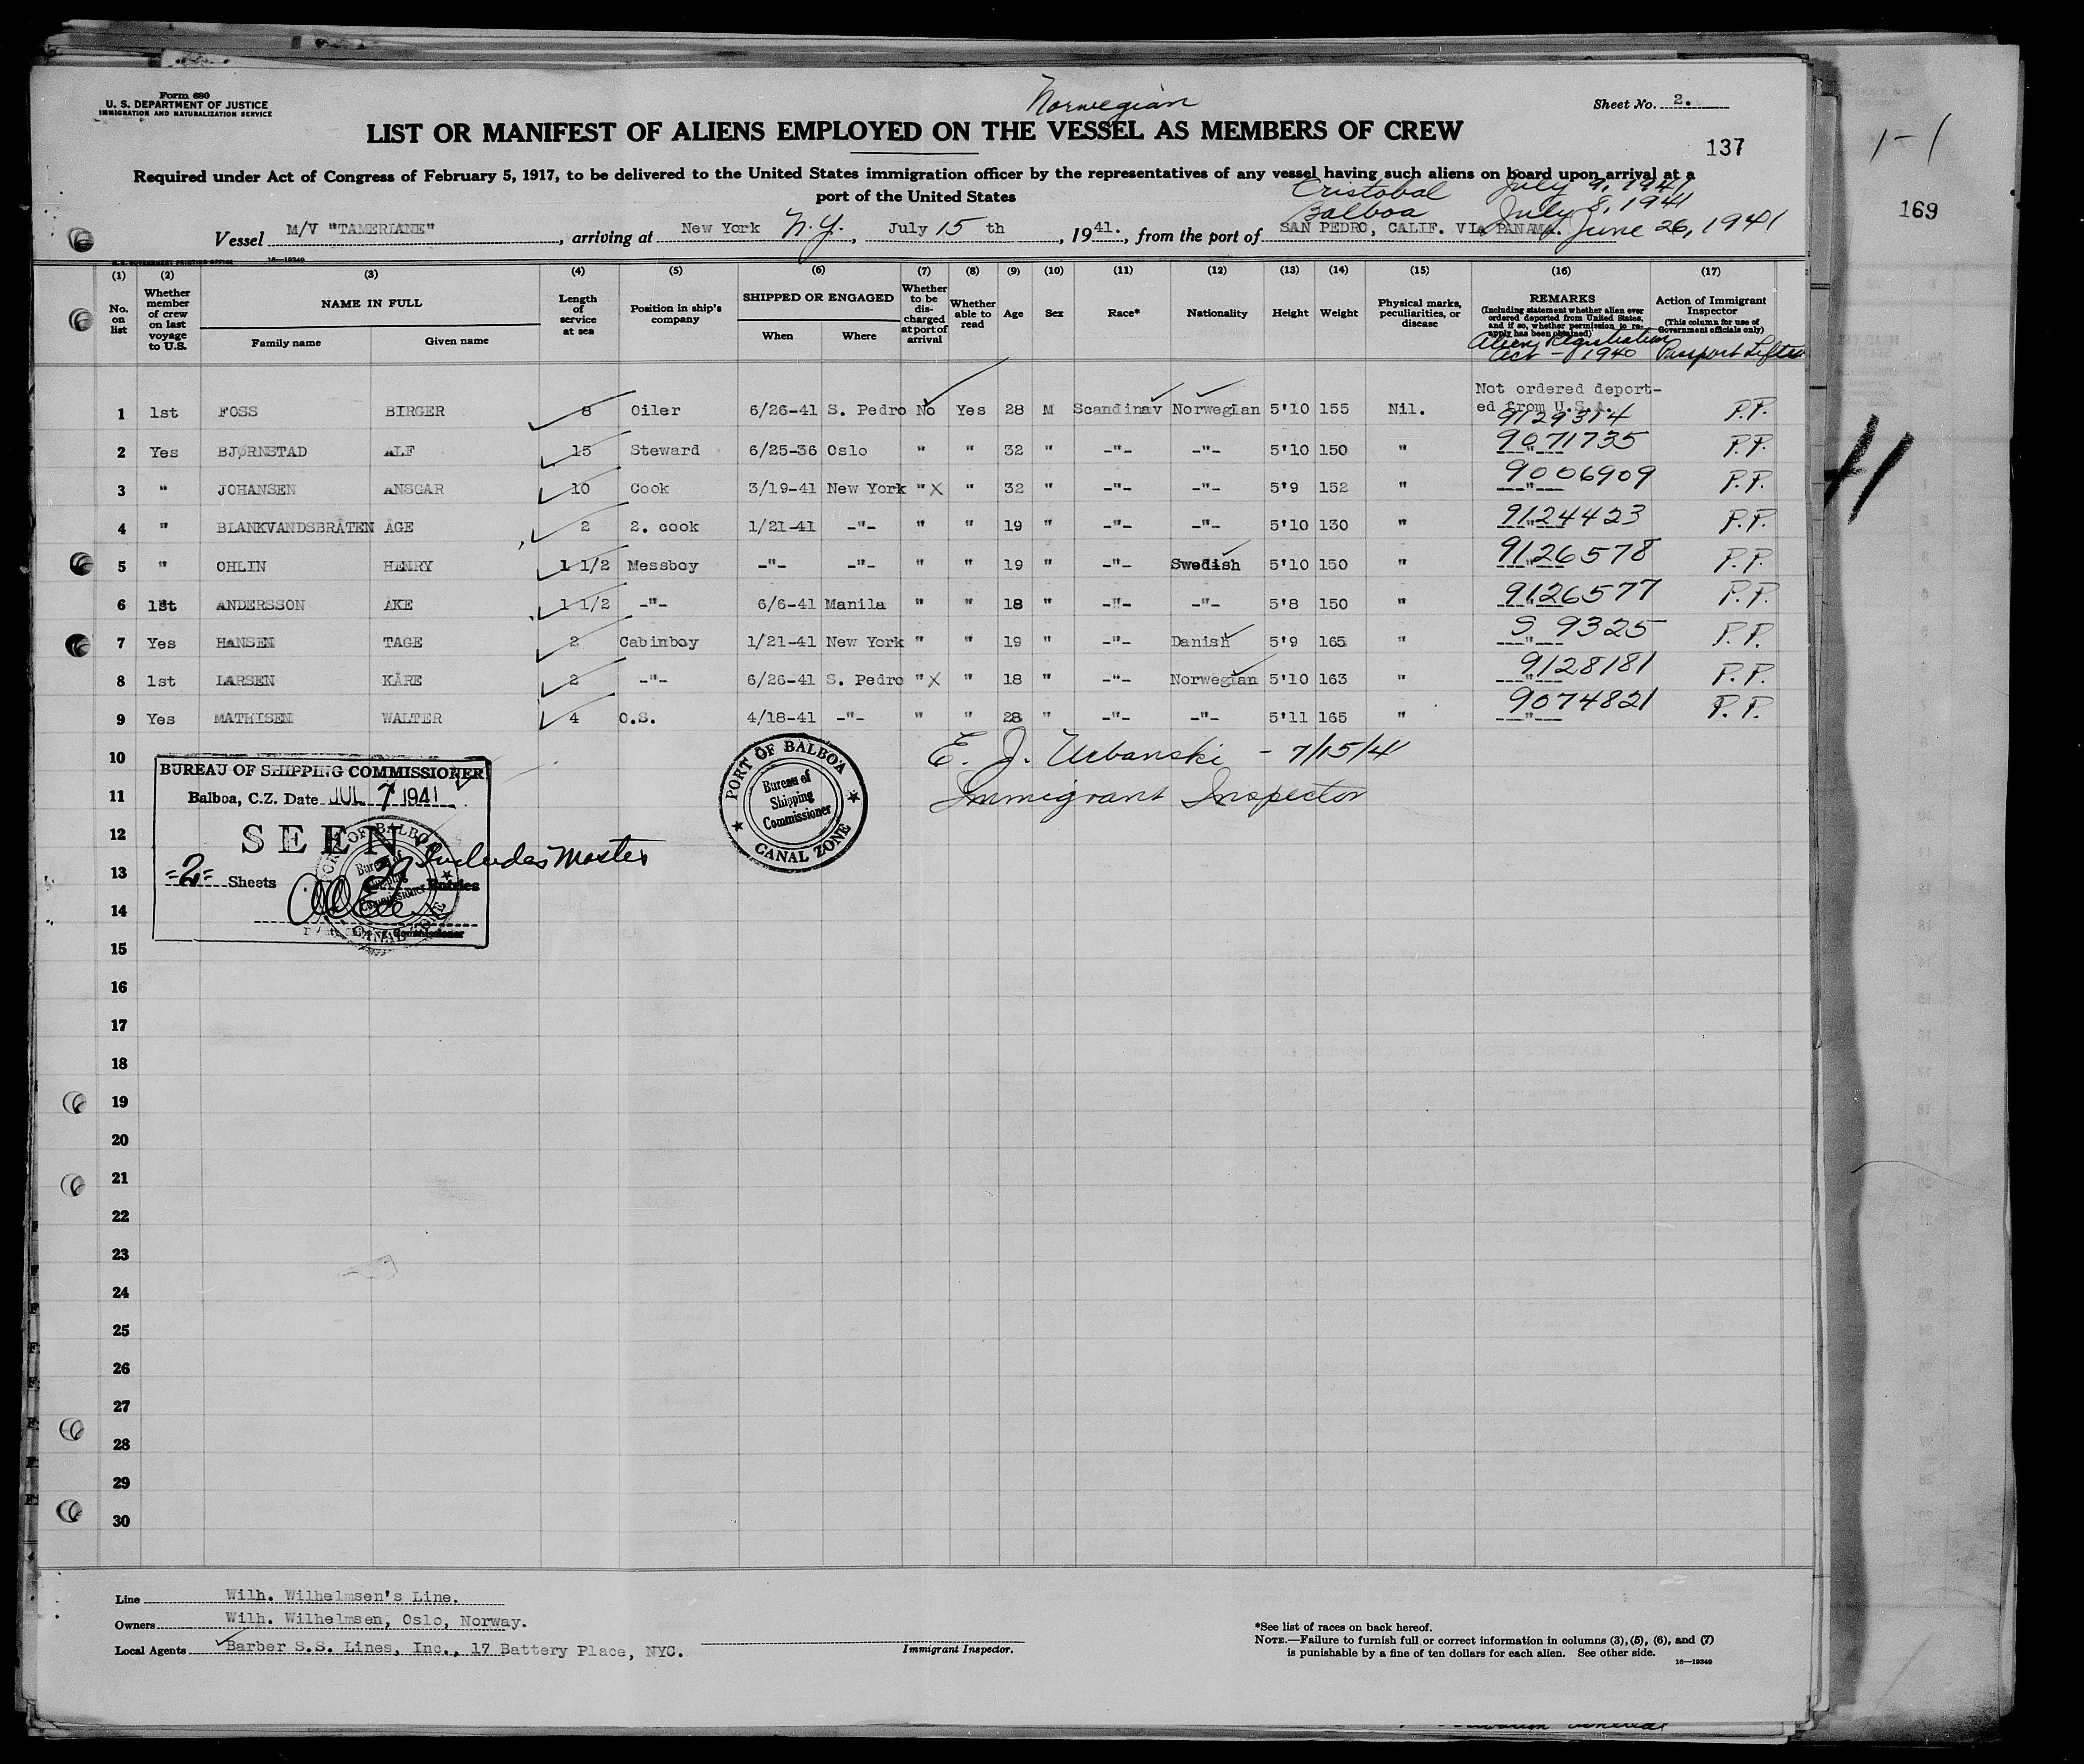 Form 680
U. S. DEPARTMENT OF JUSTICE
IMMIGRATION AND NATURALIZATION SERVICE
Norwegian
Sheet No. 2.
LIST OR MANIFEST OF ALIENS EMPLOYED ON THE VESSEL AS MEMBERS OF CREW
137
1-1
Required under Act of Congress of February 5, 1917, to be delivered to the United States immigration officer by the representatives of any vessel having such aliens on board upon arrival at a
port of the United States
Cristobal July 9, 1941
Balboa July 8, 1941
169
Vessel M/V "TAMERLANE", arriving at New York N.Y., July 15 th, 1941., from the port of SAN PEDRO, CALIF. VIA PANAMA. June 26, 1941
16—19349
(1) (2) (3) (4) (5) (6) (7) (8) (9) (10) (11) (12) (13) (14) (15) (16) (17)
No. on list
Whether member of crew on last voyage to U.S.
NAME IN FULL
Family name
Given name
Length of service at sea
Position in ship's company
SHIPPED OR ENGAGED
When
Where
Whether to be discharged at port of arrival
Whether able to read
Age
Sex
Race*
Nationality
Height
Weight
Physical marks, peculiarities, or disease
REMARKS
(Including statement whether alien ever ordered deported from United States, and if so, whether permission to re-apply has been obtained)
Alien Registration
Act - 1940
Action of Immigrant Inspector
(This column for use of Government officials only)
Passport Lifted
Not ordered deport-
1 1st FOSS BIRGER 8 Oiler 6/26-41 S. Pedro No Yes 28 M Scandinav Norwegian 5'10 155 Nil. ed from U.S.A. 9129314 P.P.
2 Yes BJØRNSTAD ALF 15 Steward 6/25-36 Oslo " " 32 " -"- -"- 5'10 150 " 9071735 --"-- P.P.
3 " JOHANSEN ANSGAR 10 Cook 3/19-41 New York " X " 32 " -"- -"- 5'9 152 " 9006909 --"-- P.P.
4 " BLANKVANDSBRÅTEN ÅGE 2 2. cook 1/21-41 -"- " " 19 " -"- -"- 5'10 130 " 9124423 --"-- P.P.
5 " OHLIN HENRY 1 1/2 Messboy -"- -"- " " 19 " -"- Swedish 5'10 150 " 9126578 --"-- P.P.
6 1st ANDERSSON ÅKE 1 1/2 -"- 6/6-41 Manila " " 18 " -"- -"- 5'8 150 " 9126577 --"-- P.P.
7 Yes HANSEN TAGE 2 Cabinboy 1/21-41 New York " " 19 " -"- Danish 5'9 165 " S 9325 --"-- P.P.
8 1st LARSEN KÅRE 2 -"- 6/26-41 S. Pedro " X " 18 " -"- Norwegian 5'10 163 " 9128181 --"-- P.P.
9 Yes MATHISEN WALTER 4 O.S. 4/18-41 -"- " " 28 " -"- -"- 5'11 165 " 9074821 --"-- P.P.
10
E. J. Urbanski - 7/15/41
Immigrant Inspector
BUREAU OF SHIPPING COMMISSIONER
Balboa, C.Z. Date JUL 7 1941
SEEN
=2= Sheets 39 Entries Includes Master
PORT OF BALBOA
Bureau of Shipping Commissioner
CANAL ZONE
PORT OF BALBOA
Bureau of Shipping Commissioner
CANAL ZONE
11
12
13
14
15
16
17
18
19
20
21
22
23
24
25
26
27
28
29
30
Line Wilh. Wilhelmsen's Line.
Owners Wilh. Wilhelmsen, Oslo, Norway.
Local Agents Barber S.S. Lines, Inc., 17 Battery Place, NYC.
Immigrant Inspector.
*See list of races on back hereof.
NOTE.—Failure to furnish full or correct information in columns (3), (5), (6), and (7)
is punishable by a fine of ten dollars for each alien. See other side.
16—19349